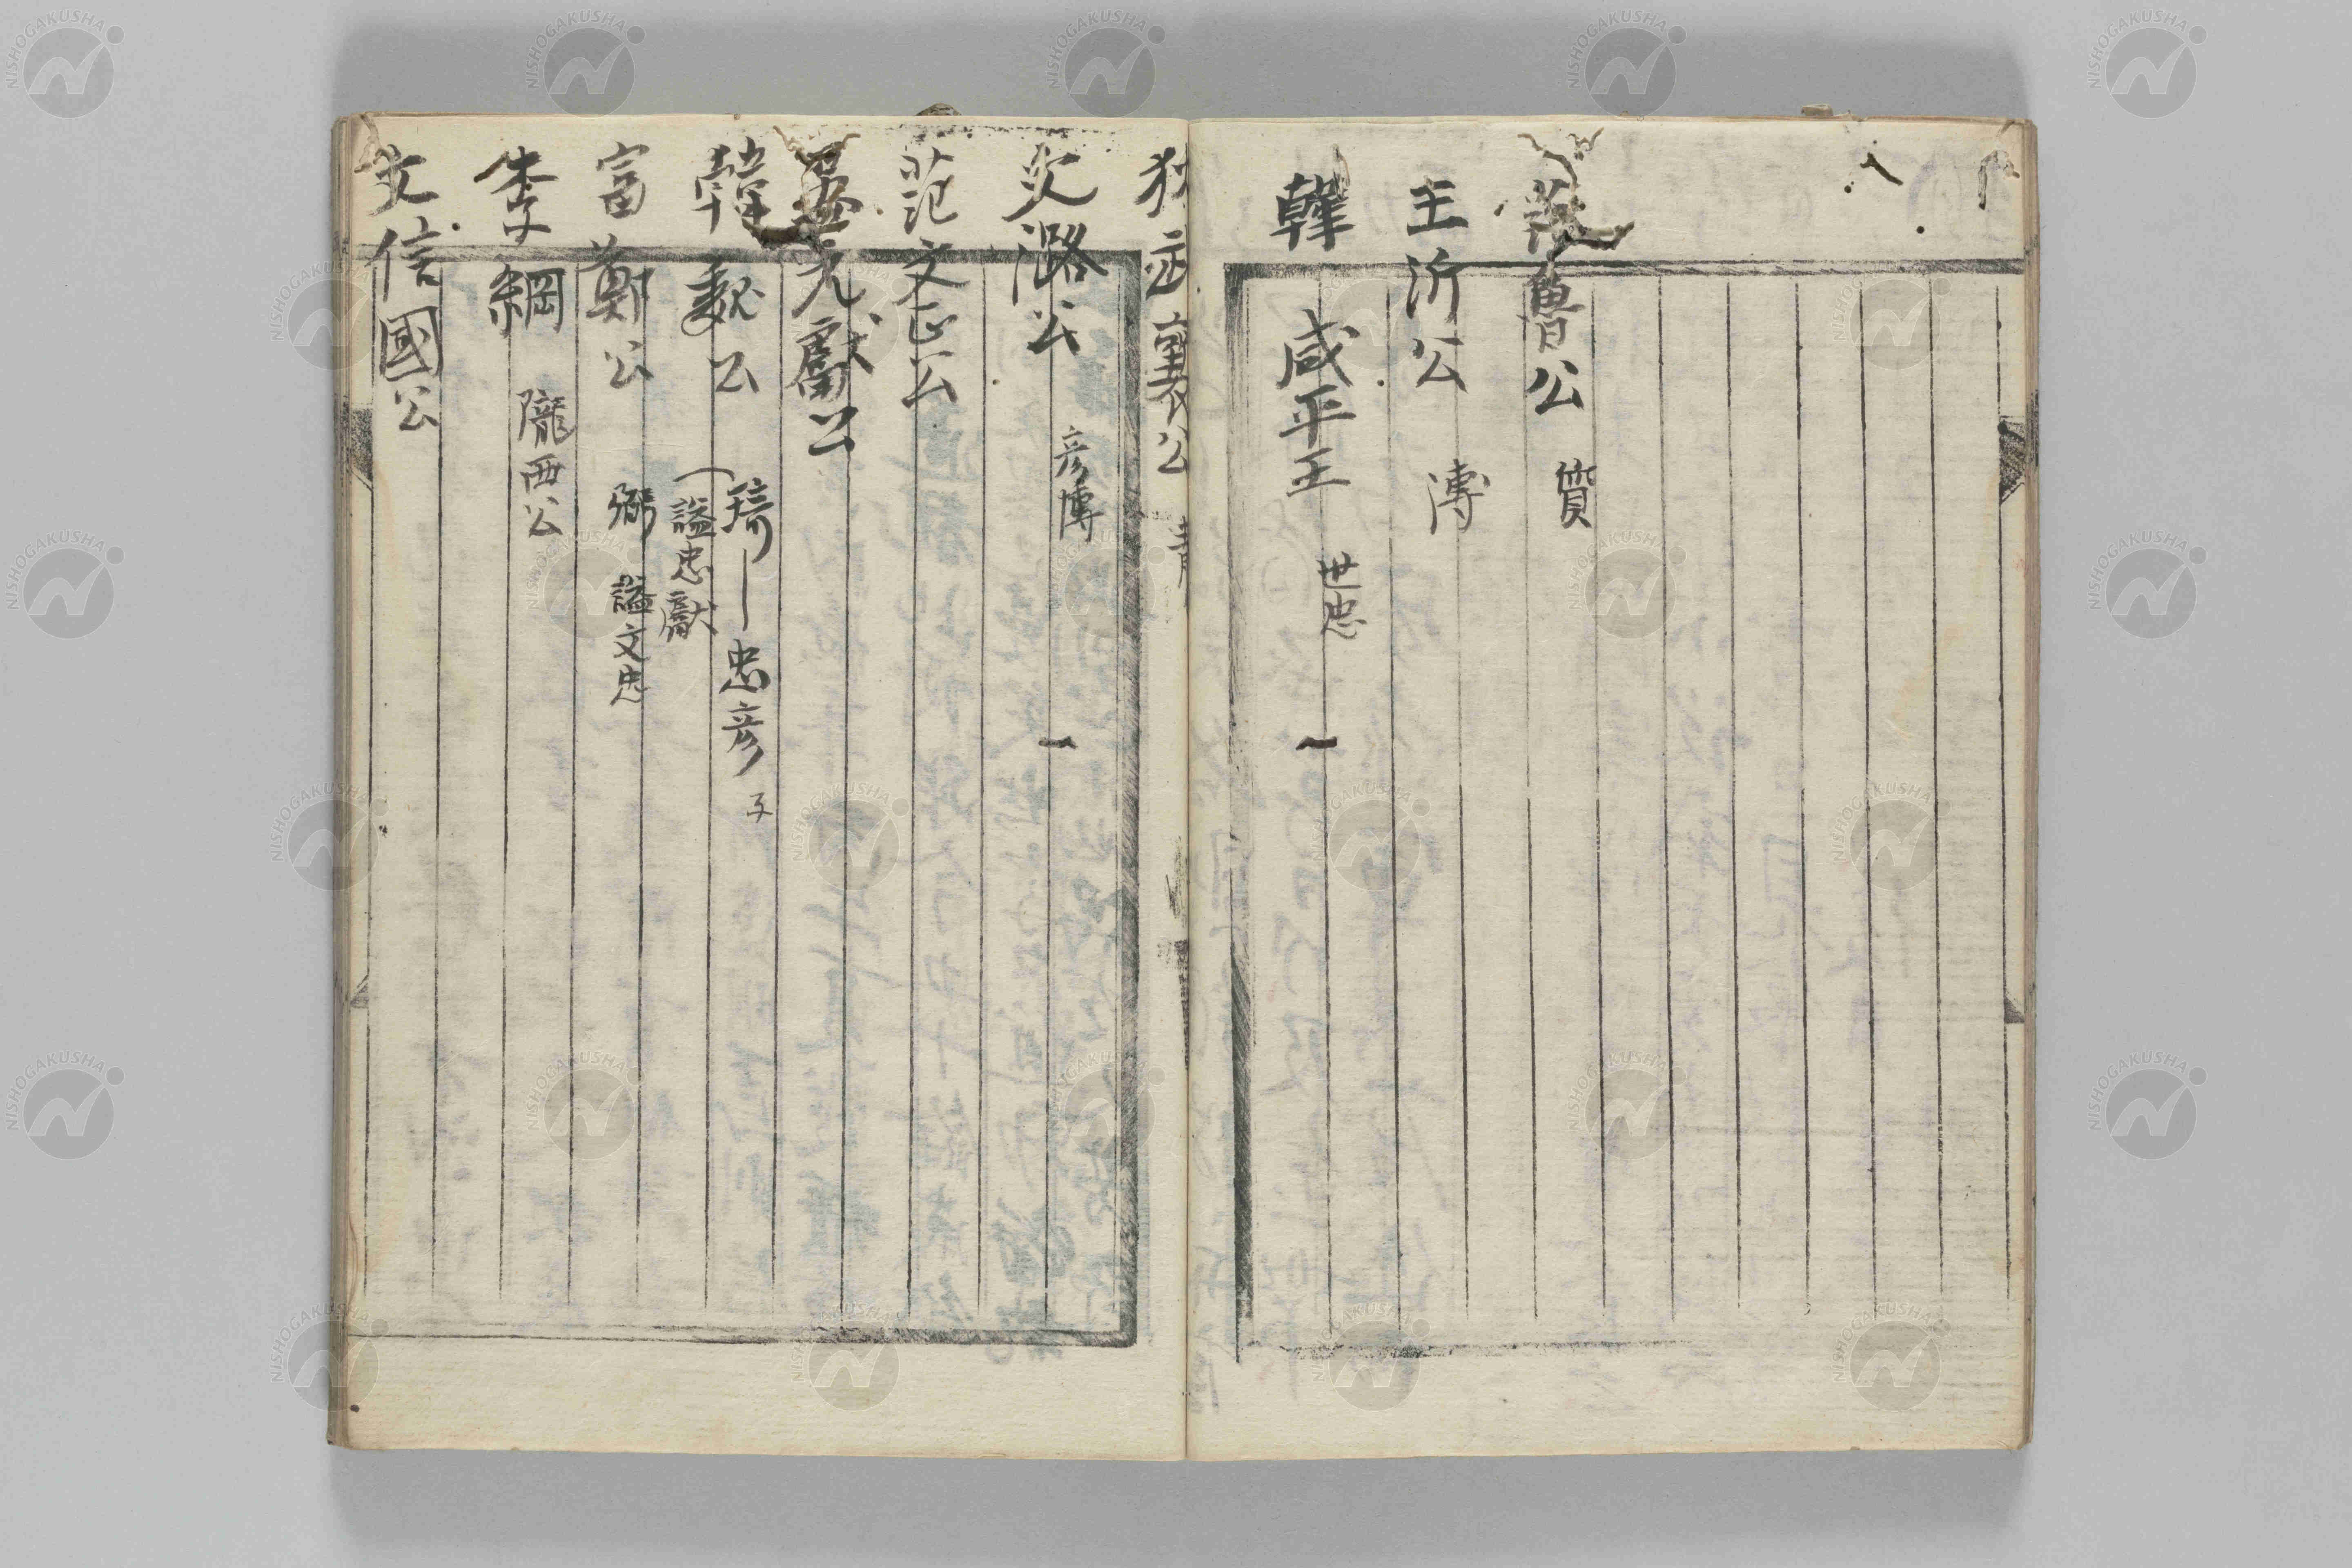 范魯公 質
王沂公 溥
韓 咸平王 世忠
狄武襄公 青
文潞公 彦博
范文正公
孟元獻公
韓魏公 琦 忠彦 子
謚忠獻
富鄭公 弼 謚文忠
李綱 隴西公
文信國公
NISHOGAKUSHA